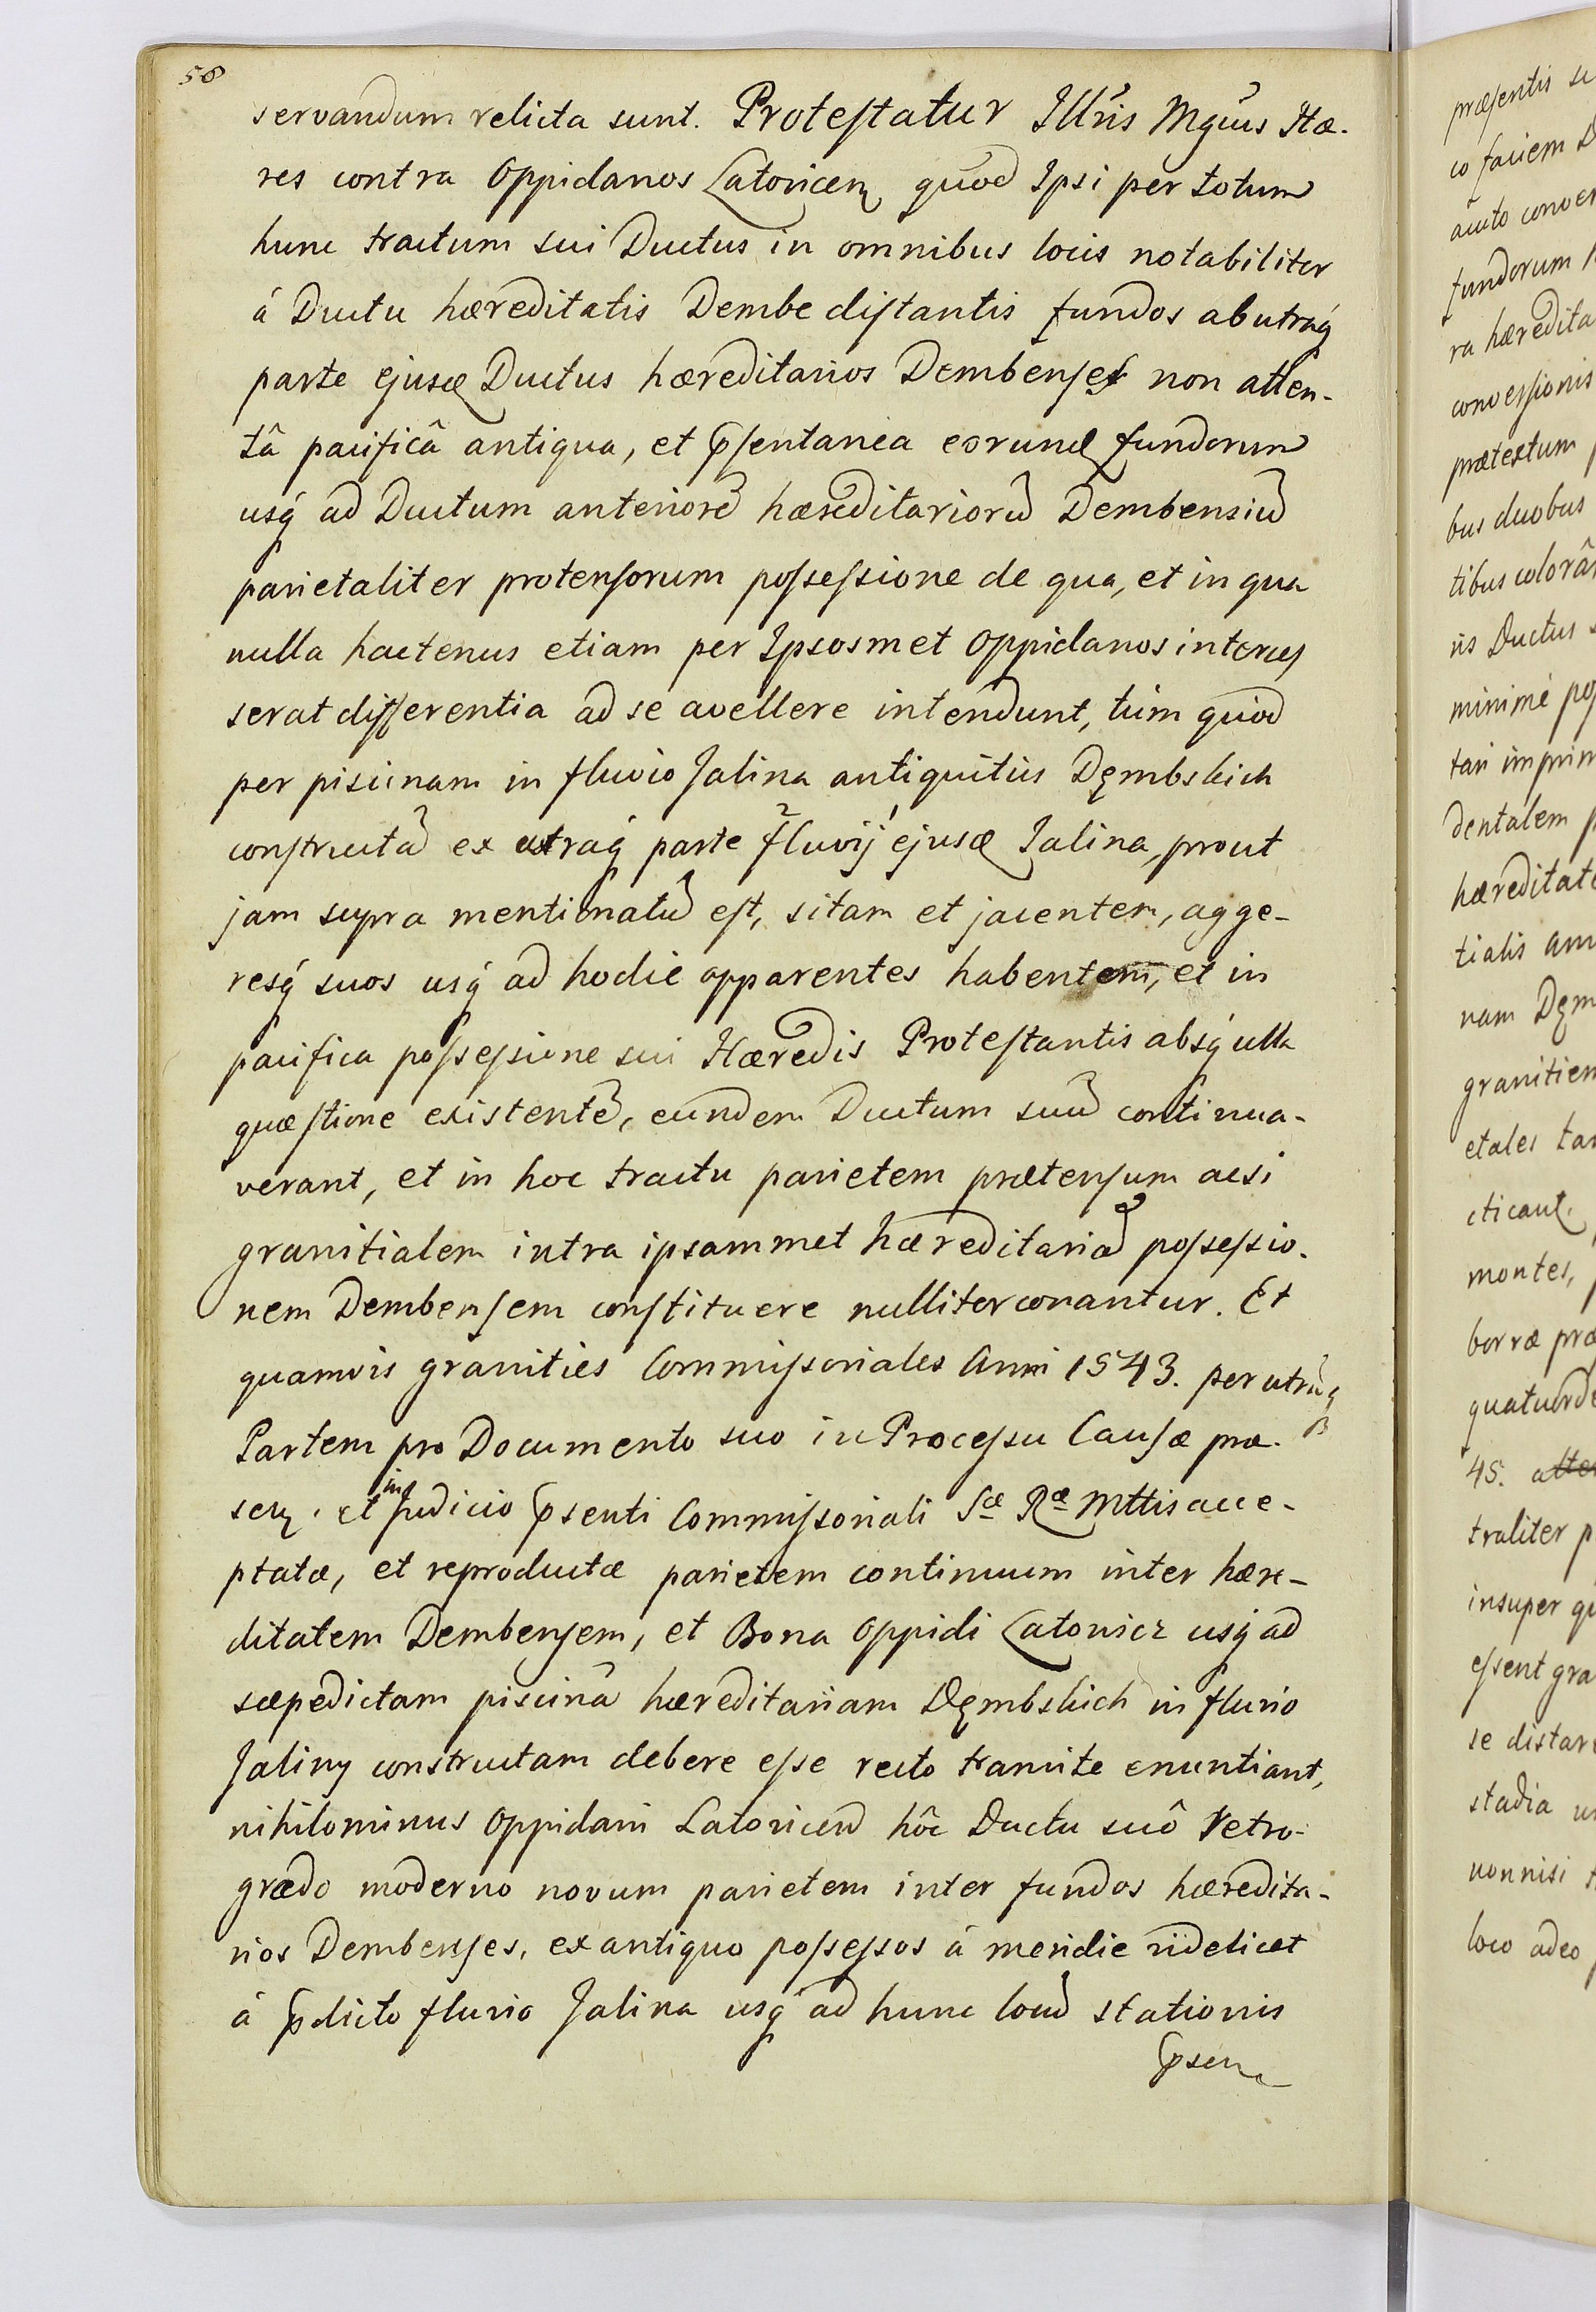 58
servandum relicta sunt. Protestatur Illris Mgcus Hæ-
res contra Oppidanos Latovicen quod Ipsi per totum
hunc tractum sui Ductus in omnibus locis notabiliter
á Ductu hæreditatis Dembe distantis fundos ab utraq
parte ejusd Ductus hæreditarios Dembenses non atten-
tâ pacificâ antiqua, et pnsentanea eorund fundorum
usq ad Ductum anteriorẽ hæreditariorũ Dembensiũ
parietaliter protensorum possessione de qua, et in qua
nulla hactenus etiam per Ipsosmet Oppidanos interces
serat differentia ad se avellere intendunt, tùm quòd
per piscinam in fluvio Jalina antiquitùs Dęmbskich
constructã ex utraq parte fluvij ejusd Jalina, prout
jam supra mentionatũ est, sitam et jacentem, agge-
resq suos usq ad hodie apparentes habentem, et in
pacifica possessione sui Hæredis Protestantis absq ulla
quæstione existentẽ, eundem Ductum suũ continua-
verant, et in hoc tractu parietem prætensum acsi
granitialem intra ipsammet hæreditariã possessio-
nem Dembensem constituere nulliter conantur. Et
quamvis granities Commissoriales Anni 1543. per utrãq
Partem pro Documento suo in Processu Causæ præ-
sen. et in Judicio psenti Commissoriali Sæ Ræ Mttis acce-
ptatæ, et reproductæ parietem continuum inter hære-
ditatem Dembensem, et Bona Oppidi Latovicz usq ad
sæpedictam piscinã hæreditariam Dęmbskich in fluvio
Jaliny constructam debere esse recto tramite enuntiant,
nihilominus Oppidani Latovicen hôc Ductu suô retro-
grado moderno novum parietem inter fundos hæredita-
rios Dembenses, ex antiquo possessos á meridie videlicet
á pdicto fluvio Jalina usq ad hunc locũ stationis
psen
præsentis
co faciem
acuto conver
fundorum
ra hæredita
conversionis
prætextum
bus duobus
tibus colorâ
is Ductus
minimé pos
tari imprim
dentalem
hæreditate
tialis
nam Dęm
granitiem
etales tan
cticant.
montes,
borræ præ
quatuorde
45.
traliter p
insuper qu
essent gra
se distar
stadia
nonnisi
loco adeo